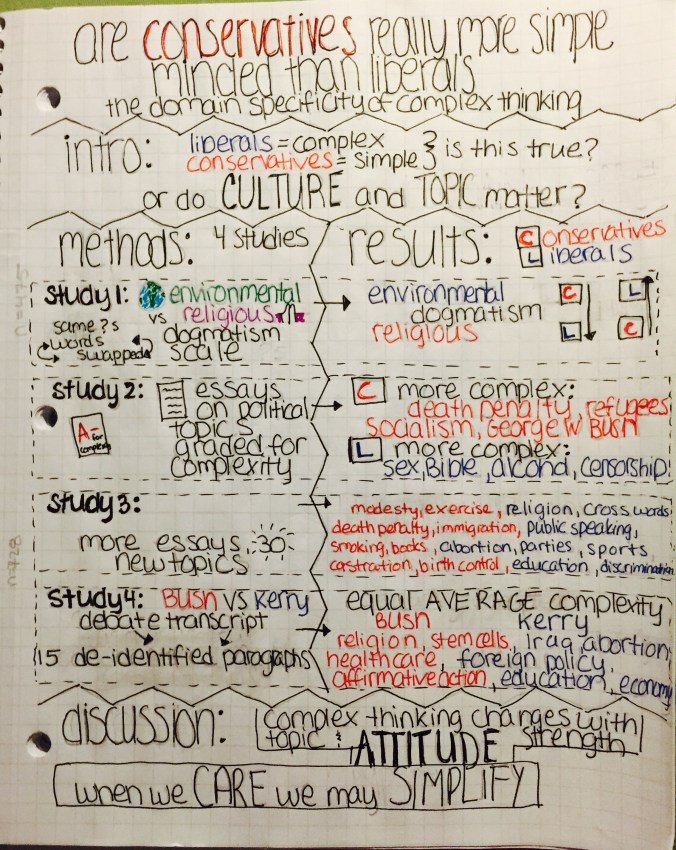 are conservatives really more simple
minded than liberals
the domain specificity of complex thinking
intro:
liberals = complex
conservatives = simple
} is this true?
or do CULTURE and TOPIC matter?
methods: 4 studies
n=475
Study 1: environmental
vs religious
dogmatism
scale
same ?s
words
swapped
Study 2: essays
on political
topics
graded for
complexity
A- for
complexity
Study 3:
more essays, 30
new topics
n=728
Study 4: Bush vs Kerry
debate transcript
15 de-identified paragraphs
results:
C onservatives
L iberals
environmental
dogmatism
religious
C L
L C
C more complex:
death penalty, refugees
socialism, George W Bush
L more complex:
sex, Bible, alcohol, censorship
modesty, exercise, religion, crosswords
death penalty, immigration, public speaking,
smoking, books, abortion, parties, sports
castration, birth control, education, discrimination
equal AVERAGE complexity
Bush Kerry
religion, stem cells, Iraq, abortion,
healthcare, foreign policy,
affirmative action, education, economy
discussion:
complex thinking changes with
topic & ATTITUDE strength
when we CARE we may SIMPLIFY